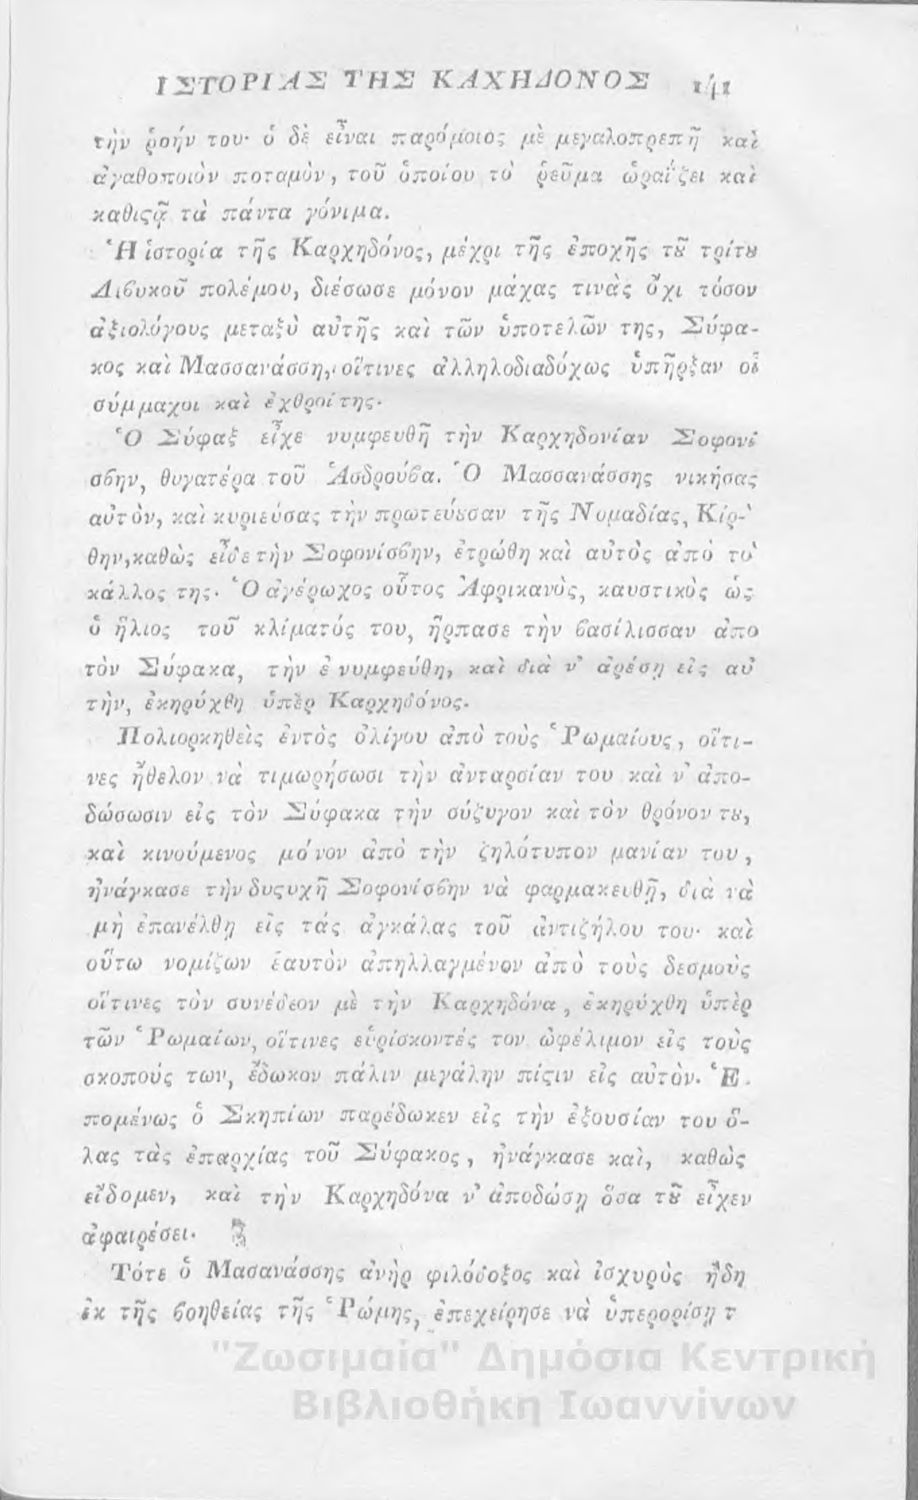 ΙΣΤΟΡΙΑΣ ΤΗΣ ΚΑΧΗΔΟΝΟΣ
τὴν ῥοήν του· ὁ δὲ εἶναι παρόμοιος μὲ μεγαλοπρεπῆ καὶ
ἀγαθοποιὸν ποταμὸν, τοῦ ὁποίου τὸ ῥεῦμα ὡραΐζει καὶ
καθιςᾷ τὰ πάντα γόνιμα.
Ἡ ἱστορία τῆς Καρχηδόνος, μέχρι τῆς ἐποχῆς τȣ͂ τρίτȣ
Λιϐυκοῦ πολέμου, διέσωσε μόνον μάχας τινὰς ὄχι τόσον
ἀξιολόγους μεταξὺ αὐτῆς καὶ τῶν ὑποτελῶν της, Σύφα-
κος καὶ Μασσανάσση, οἵτινες ἀλληλοδιαδόχως ὑπῆρξαν οἱ
σύμμαχοι καὶ ἐχθροί της.
Ὁ Σύφαξ εἶχε νυμφευθῆ τὴν Καρχηδονίαν Σοφονί
σϐην, θυγατέρα τοῦ Ἀσδρούϐα. Ὁ Μασσανάσσης νικήσας
αὐτὸν, καὶ κυριεύσας τὴν πρωτεύεσαν τῆς Νομαδίας, Κίρ-
θην, καθὼς εἶδε τὴν Σοφονίσϐην, ἐτρώθη καὶ αὐτὸς ἀπὸ τὸ
κάλλος της· Ὁ ἀγέρωχος οὗτος Ἀφρικανὸς, καυστικὸς ὡς
ὁ ἥλιος τοῦ κλίματός του, ἥρπασε τὴν ϐασίλισσαν ἀπο
τὸν Σύφακα, τὴν ἐνυμφεύθη, καὶ διὰ ν' ἀρέσῃ εἰς αὐ
τὴν, ἐκηρύχθη ὑπὲρ Καρχηδόνος.
Πολιορκηθεὶς ἐντὸς ὀλίγου ἀπὸ τοὺς Ῥωμαίους, οἵτι-
νες ἤθελον νὰ τιμωρήσωσι τὴν ἀνταρσίαν του καὶ ν' ἀπο-
δώσωσιν εἰς τὸν Σύφακα τὴν σύζυγον καὶ τὸν θρόνον τȣ,
καὶ κινούμενος μόνον ἀπὸ τὴν ζηλότυπον μανίαν του,
ἠνάγκασε τὴν δυςυχῆ Σοφονίσϐην νὰ φαρμακευθῇ, διὰ νὰ
μὴ ἐπανέλθῃ εἰς τάς ἀγκάλας τοῦ ἀντιζήλου του· καὶ
οὕτω νομίζων ἑαυτὸν ἀπηλλαγμένον ἀπὸ τοὺς δεσμοὺς
οἵτινες τὸν συνέδεον μὲ τὴν Καρχηδόνα, ἐκηρύχθη ὑπὲρ
τῶν Ῥωμαίων, οἵτινες εὑρίσκοντές τον ὠφέλιμον εἰς τοὺς
σκοπούς των, ἔδωκον πάλιν μεγάλην πίςιν εἰς αὐτὸν. Ἑ-
πομένως ὁ Σκηπίων παρέδωκεν εἰς τὴν ἐξουσίαν του ὅ-
λας τὰς ἐπαρχίας τοῦ Σύφακος, ἠνάγκασε καὶ, καθὼς
εἴδομεν, καὶ τὴν Καρχηδόνα ν' ἀποδώσῃ ὅσα τȣ͂ εἶχεν
ἀφαιρέσει.
Τότε ὁ Μασανάσσης ἀνὴρ φιλόδοξος καὶ ἰσχυρὸς ἤδη
ἐκ τῆς ϐοηθείας τῆς Ῥώμης, ἐπεχείρησε νὰ ὑπερορίσῃ τ
"Ζωσιμαία" Δημόσια Κεντρική
Βιβλιοθήκη Ιωαννίνων